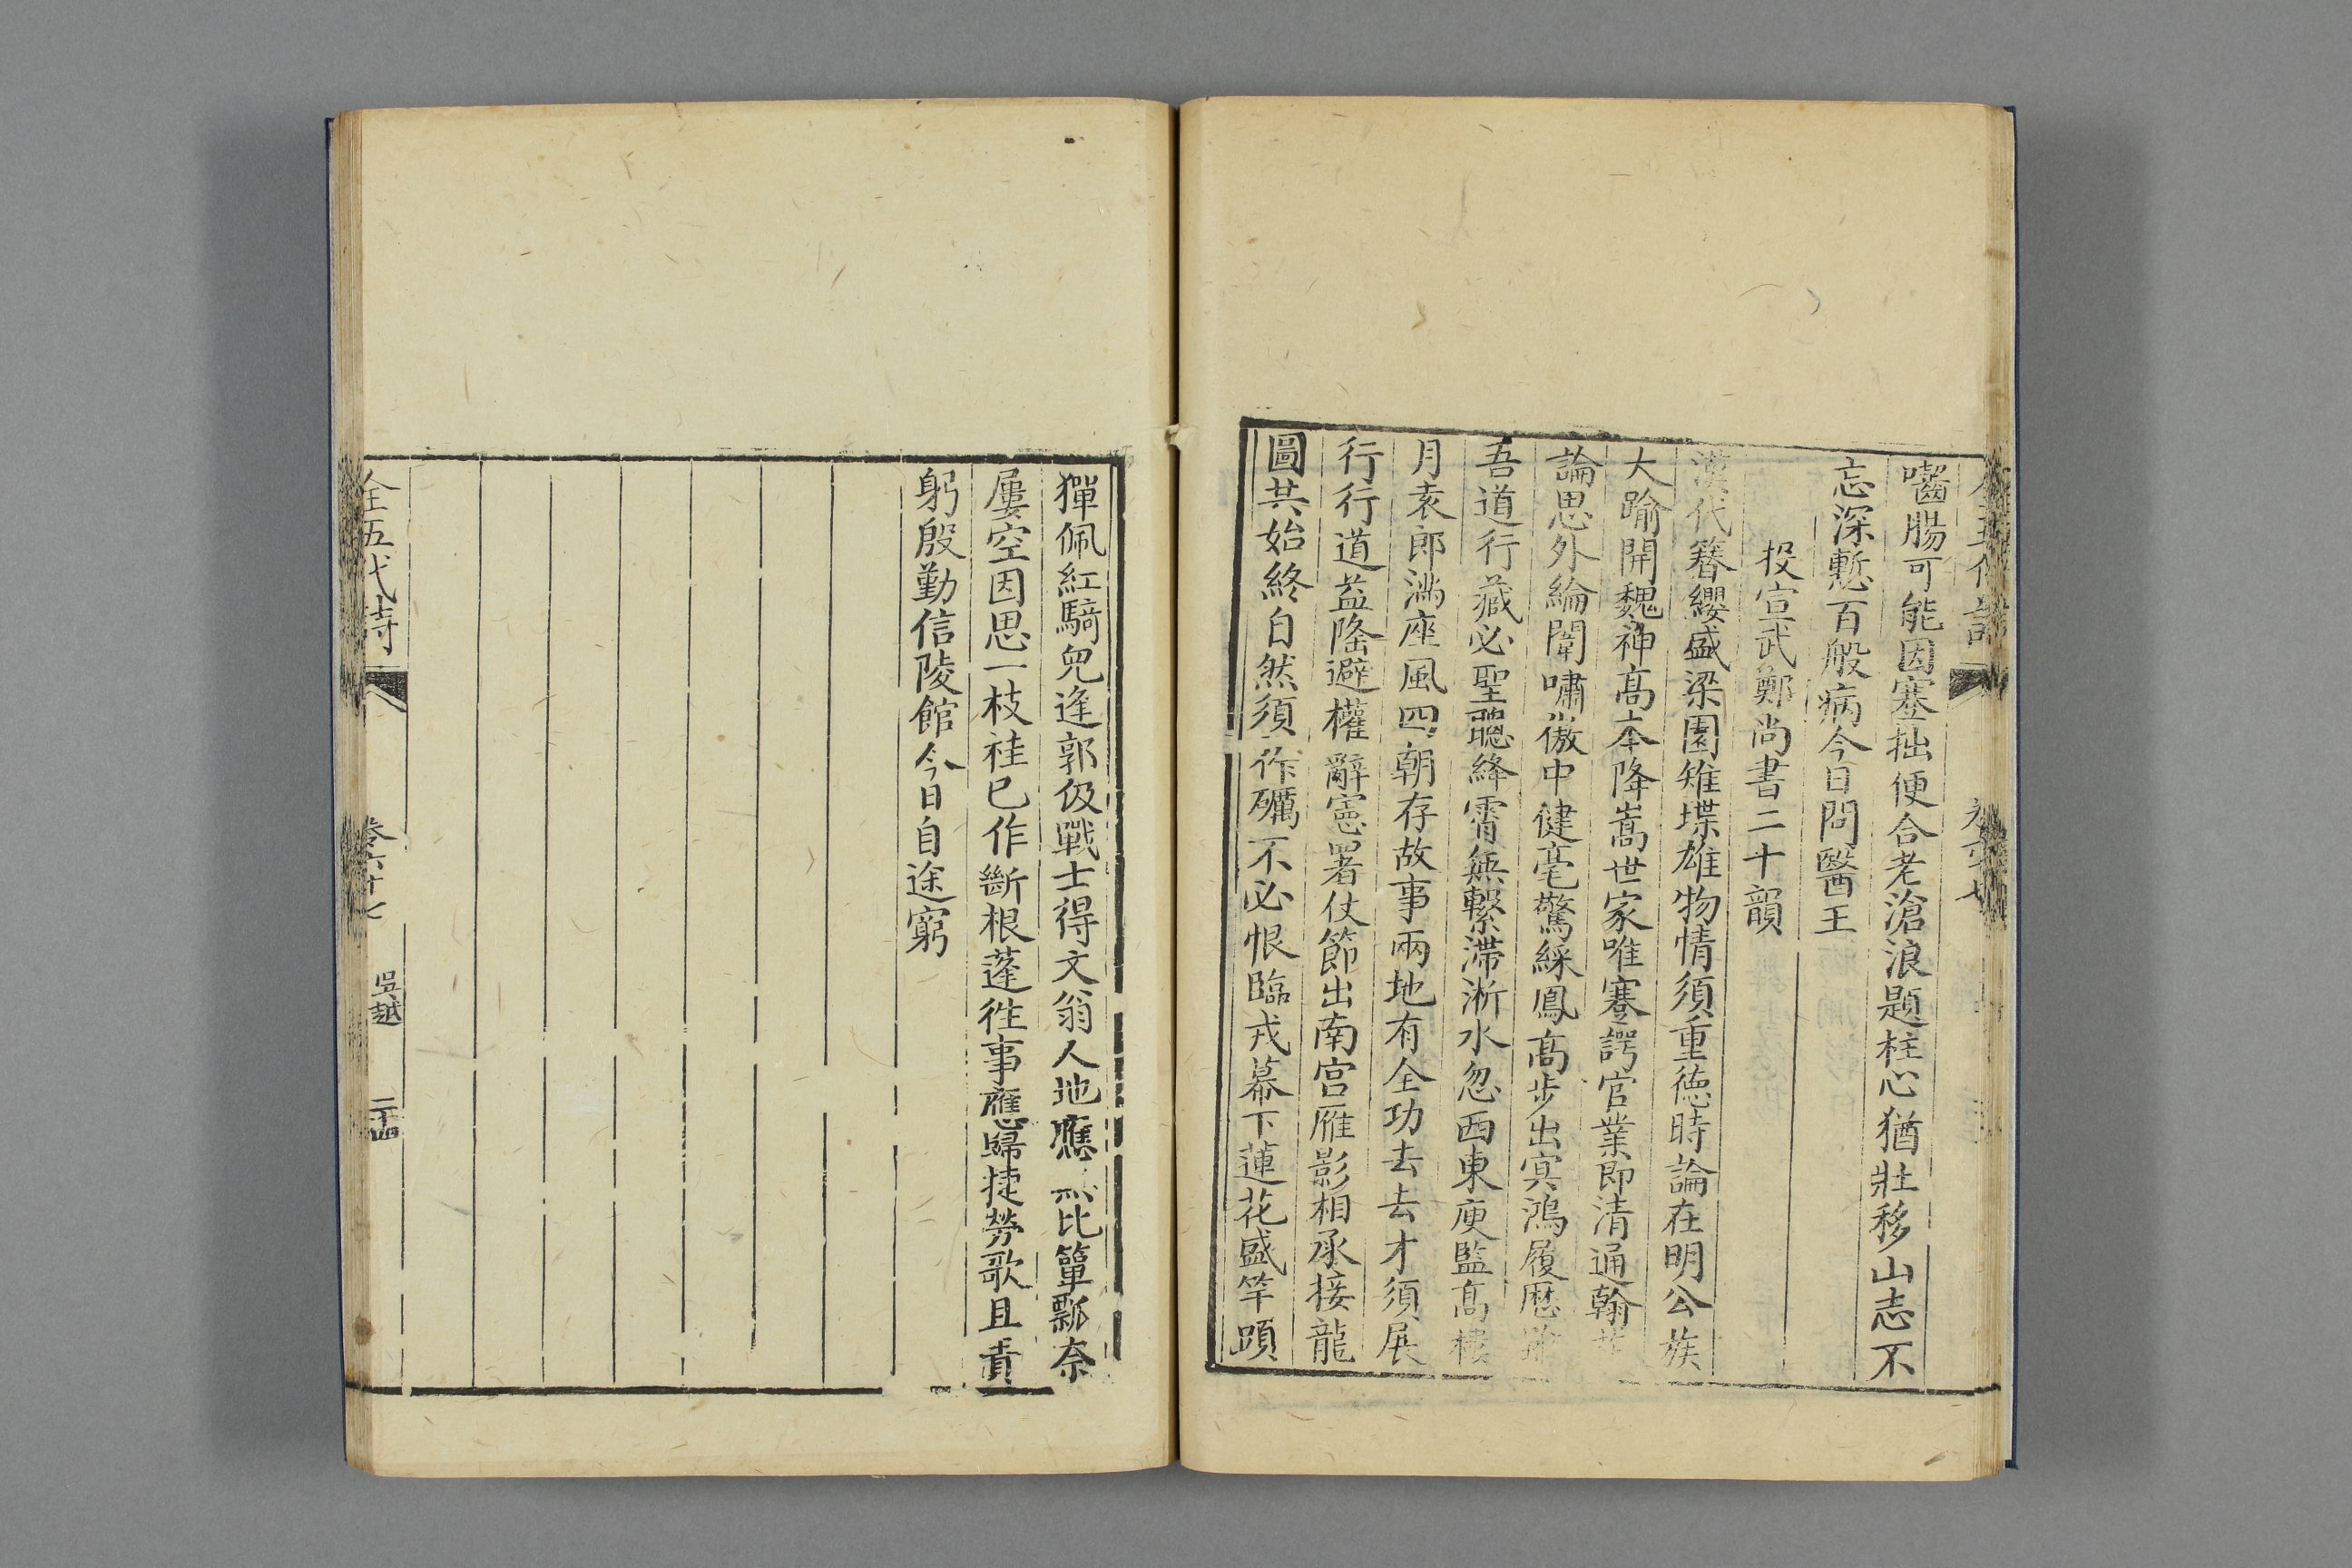 嚙腸可能因蹇拙便合老滄浪題柱心猶壯移山志不
忘深慙百般病今日問醫王
投宣武鄭尚書二十韻
漢代簪纓盛梁園雉堞雄物情須重德時論在明公族
大踰開魏神高本降嵩世家唯蹇諤官業即清通翰
論思外綸闈嘯傲中健毫驚綵鳳高步出冥鴻履歷
吾道行藏必聖聰絳霄無繫滯淅水忽西東庾監高樓
月袁郎滿座風四朝存故事兩地有全功去去才須展
行行道益隆避權辭憲署仗節出南宮雁影相承接龍
圖共始終自然須作礪不必恨臨戎幕下蓮花盛竿頭
獋佩紅騎兒逢郭伋戰士得文翁人地應比簞瓢柰
屢空因思一枝桂已作斷根蓬徃事應歸捷勞歌且責
躬殷勤信陵館今日自途窮
全五代詩
卷六十七
吳越
二十四